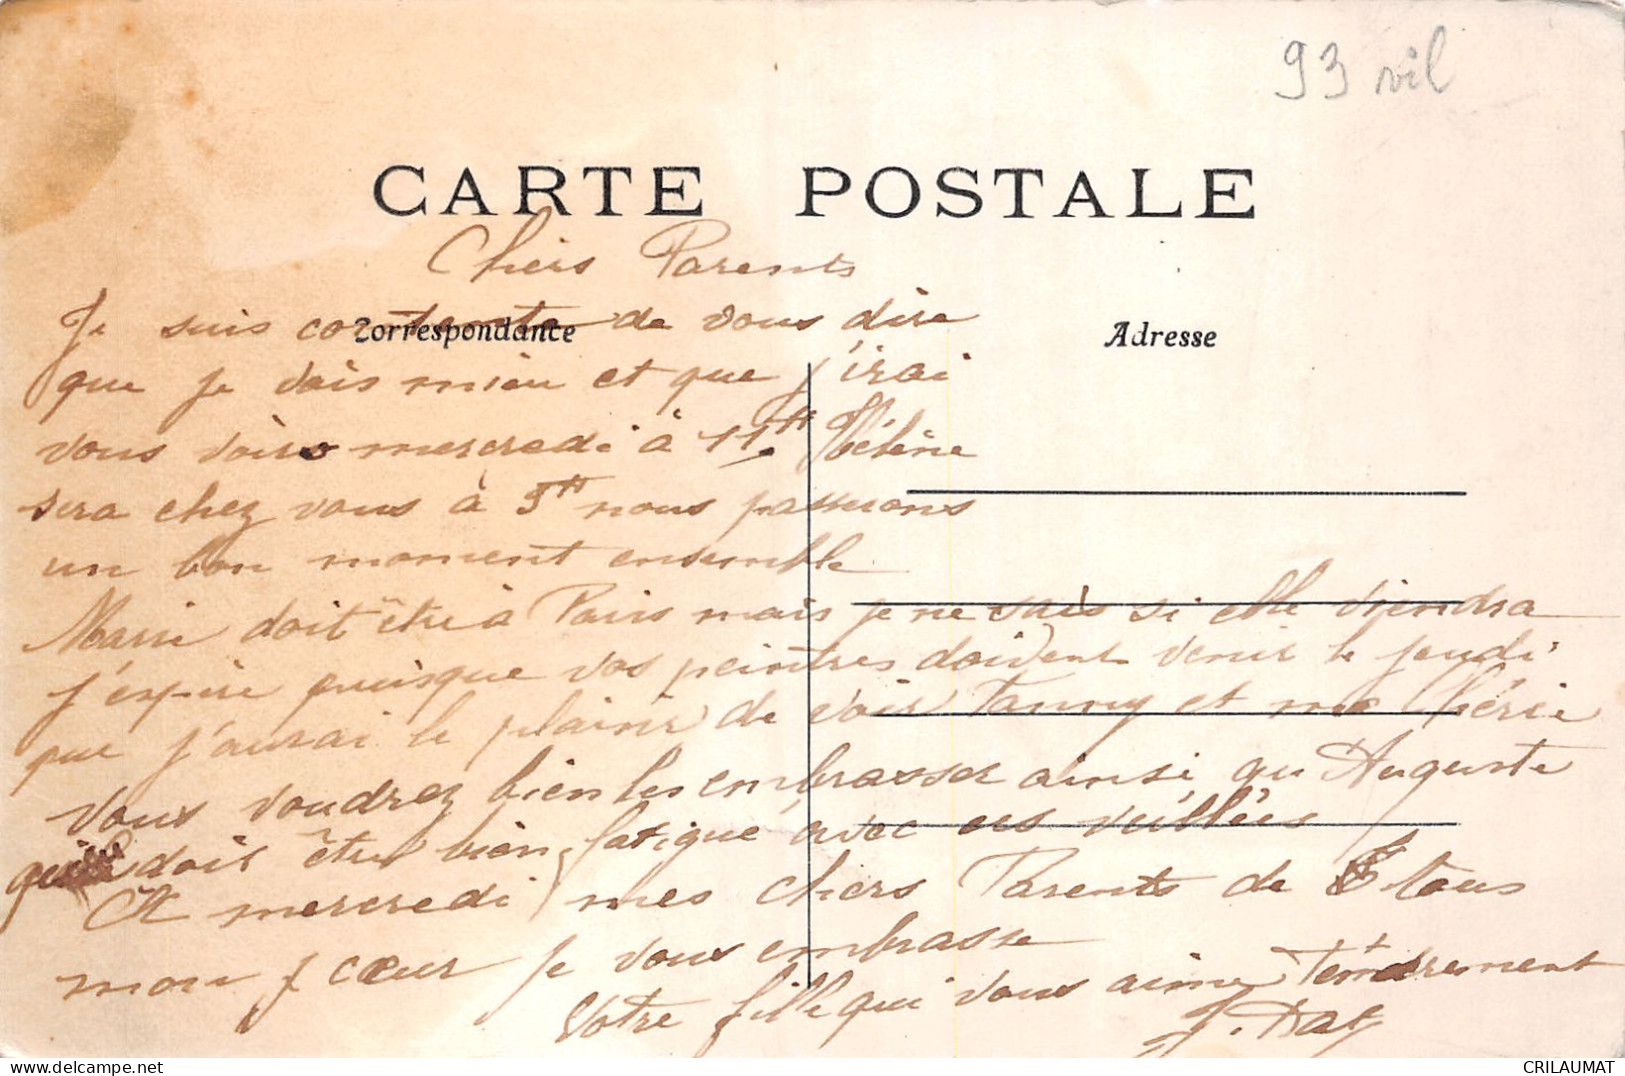 93 vil
CARTE POSTALE
Chers Parents
Je suis contente de vous dire
Correspondance
Adresse
que je vais mieu et que j'irai
vous voir mercredi à 11H Hélène
sera chez vous à 5H nous passerons
un bon moment ensemble
Marie doit être à Paris mais je ne sais si elle viendra
j'espère puisque vos peintres doivent venir le jeudi
que j'aurai le plaisir de voir Fanny et ma chérie
Vous voudrez bien les embrasser ainsi qu Auguste
qui doit être bien fatigué avec ces veillées
A mercredi mes chers Parents de tous
mon cœur je vous embrasse
Votre fille qui vous aime Tendrement
CRILAUMAT